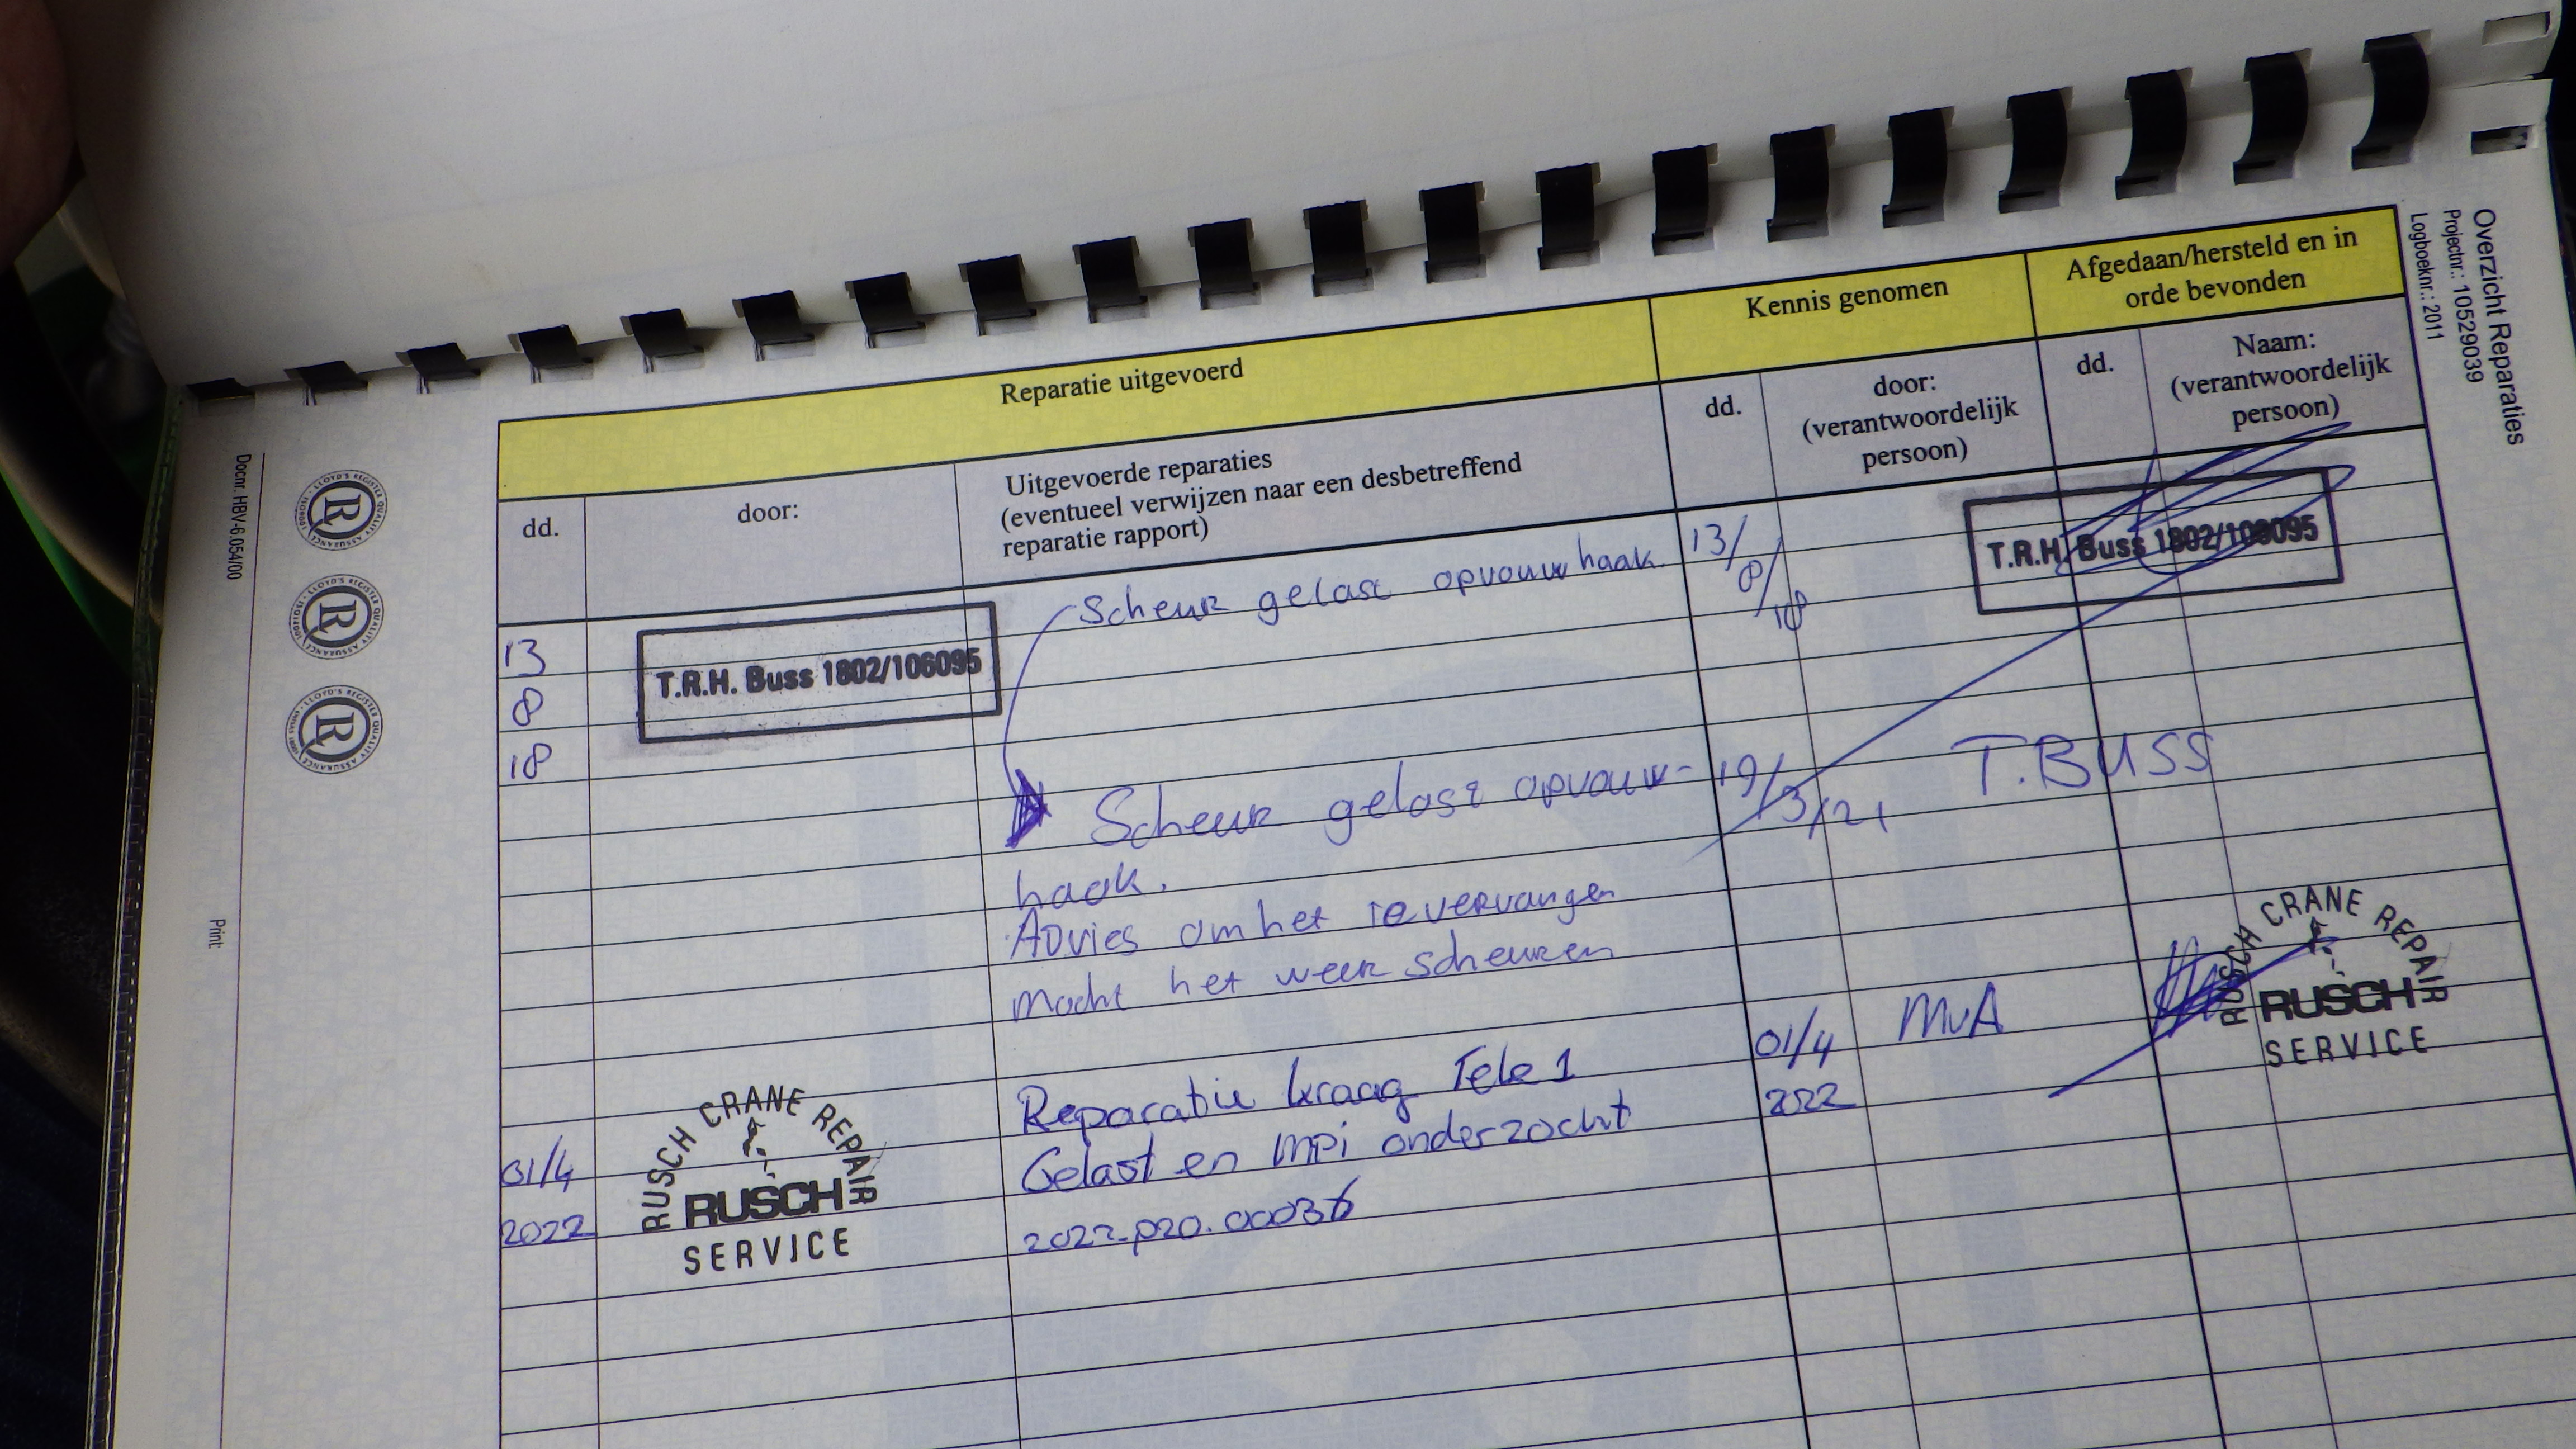 Overzicht Reparaties
Projectnr.: 10529039
Logboeknr.: 2011
Reparatie uitgevoerd
Kennis genomen
Afgedaan/hersteld en in
orde bevonden
dd.
door:
Uitgevoerde reparaties
(eventueel verwijzen naar een desbetreffend
reparatie rapport)
dd.
door:
(verantwoordelijk
persoon)
dd.
Naam:
(verantwoordelijk
persoon)
13
8
18
T.R.H. Buss 1802/106095
Scheur gelast opvouwhaak.
13/
8/
18
T.R.H. Buss 1802/106095
Scheur gelast opvouw-
haak.
Advies om het te vervangen
mocht het weer scheuren
19/3/21
T.BUSS
01/4
2022
RUSCH CRANE REPAIR
RUSCH
SERVICE
Reparatie kraag Tele 1
Gelast en mpi onderzocht
2022-p20.00036
01/4
2022
MvA
RUSCH CRANE REPAIR
RUSCH
SERVICE
Docnr. HBV-6.054/00
Print:
LLOYD'S REGISTER QUALITY ASSURANCE
LLOYD'S REGISTER QUALITY ASSURANCE
LLOYD'S REGISTER QUALITY ASSURANCE